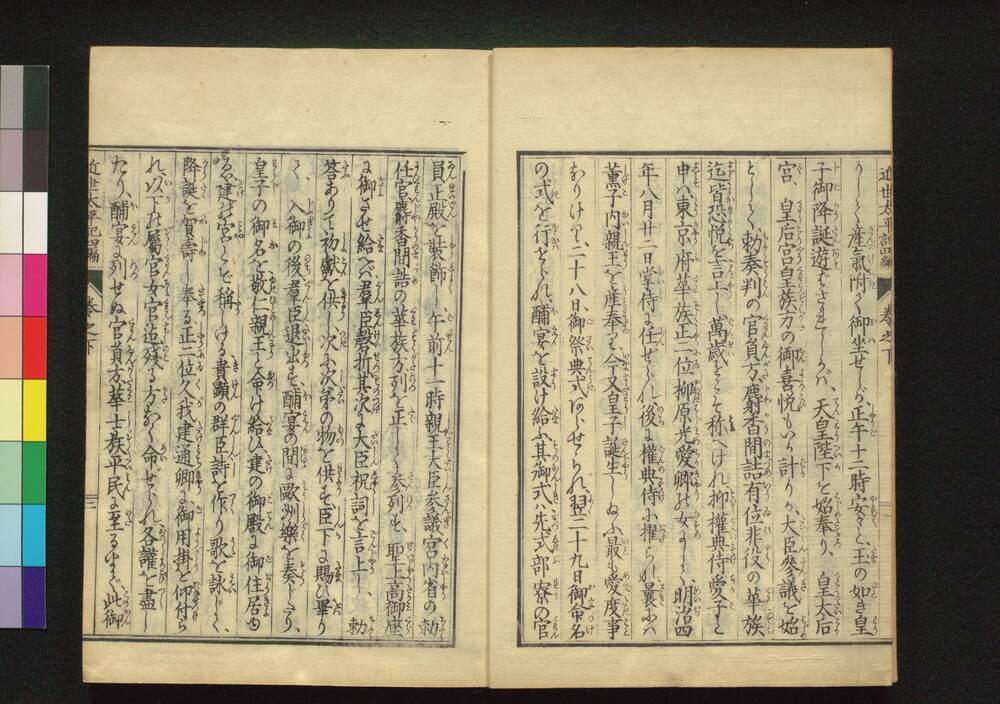 近世太平記四編 巻之下 二
りしく産氣附かく御坐せしが正午十二時安々と玉の如き皇
子御降誕遊ばされしかバ天皇陛下と始奉り皇太后
宮皇后宮皇族方の御喜悦もいか計りか大臣參議を始
として勅奏判の官員方麝香間詰有位非役の華族
迄皆恐悦を言上し萬歳をこそ称へけれ抑權典侍愛子と
申ハ東京府華族正二位柳原光愛卿の女にして明治四
年八月廿二日掌侍に任せられ後に權典侍に擢られ曩にハ
薫子内親王を産奉り今又皇子誕生し給ふ最も愛度事
なりけり二十八日御祭典式行ハせられ翌二十九日御命名
の式を行ハれ酺宴を設け給ふ其御式ハ先式部寮の官
員正殿を装飾し午前十一時親王大臣參議宮内省の勅
任官麝香間詰の華族方列を正しくして参列す聖上高御座
に御させ給へバ群臣磬折其次に大臣祝詞を言上し勅
答ありて初献を供し次に次第の物を供す臣下に賜ひ畢り
て入御の後羣臣退出す酺宴の間に歐洲樂を奏したり
皇子の御名を敬仁親王と命け給ひ建の御殿に御住居
る建の宮とぞ稱しける貴顯の群臣詩を作り歌を詠して
降誕を賀壽し奉る正二位久我建通卿に御用掛と仰付ら
れ以下の屬官女官迄残る方なく命ぜられ各讙を盡し
たり酺宴に列せぬ官員方華士族平民に至るまで此御
近世太平記四編 巻之下 三